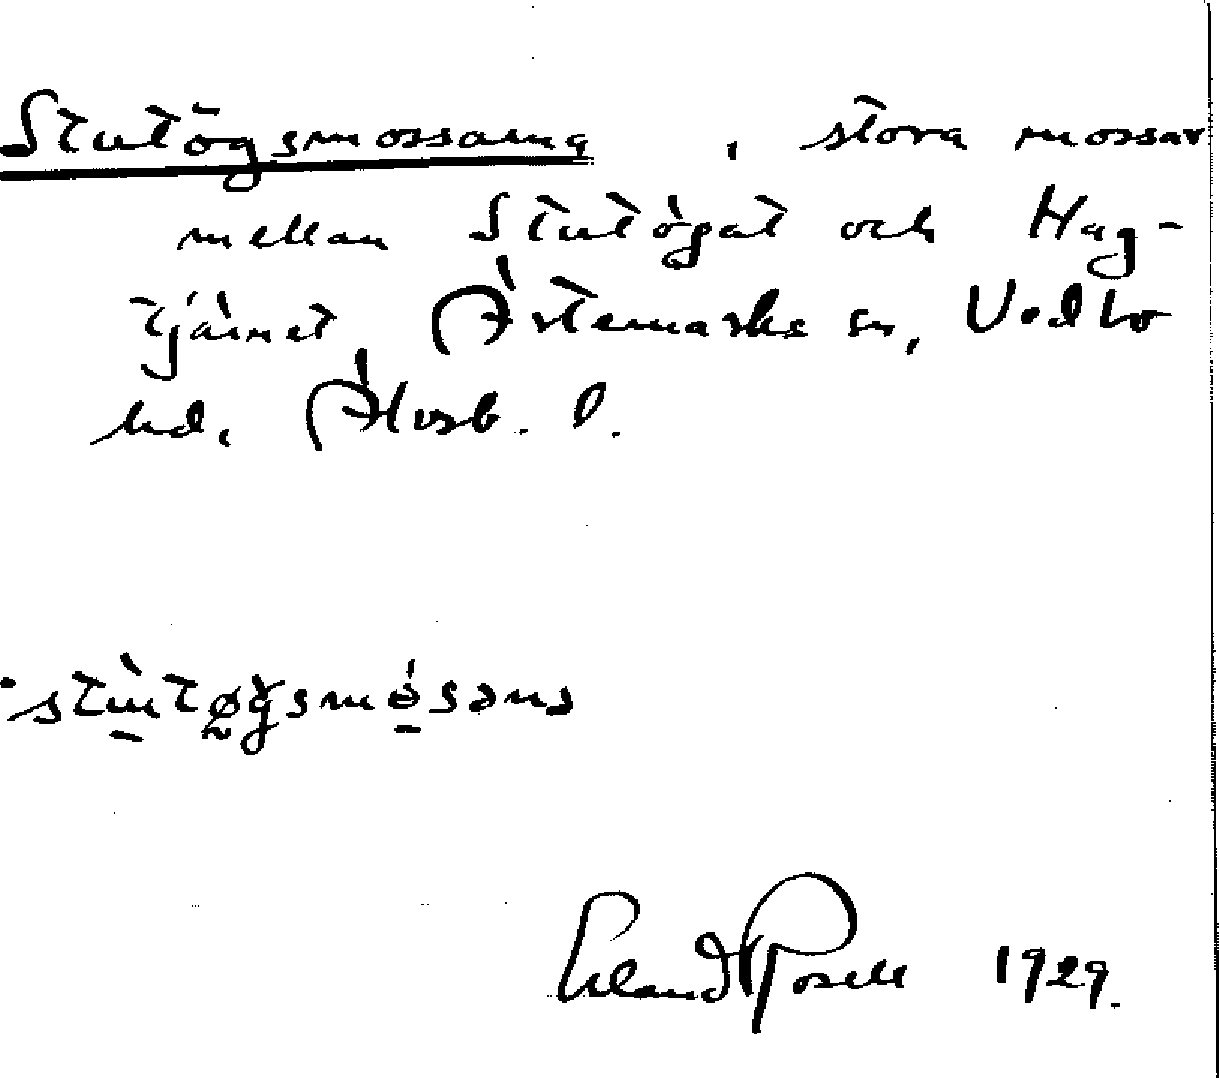 Stutögsmossarna, stora mossar
mellan Stutögat och Hag-
tjärnet, Ärtemarks sn, Vedbo
hd, Älvsb. l.
stutøgsmosəna
Erland Rosell 1929.